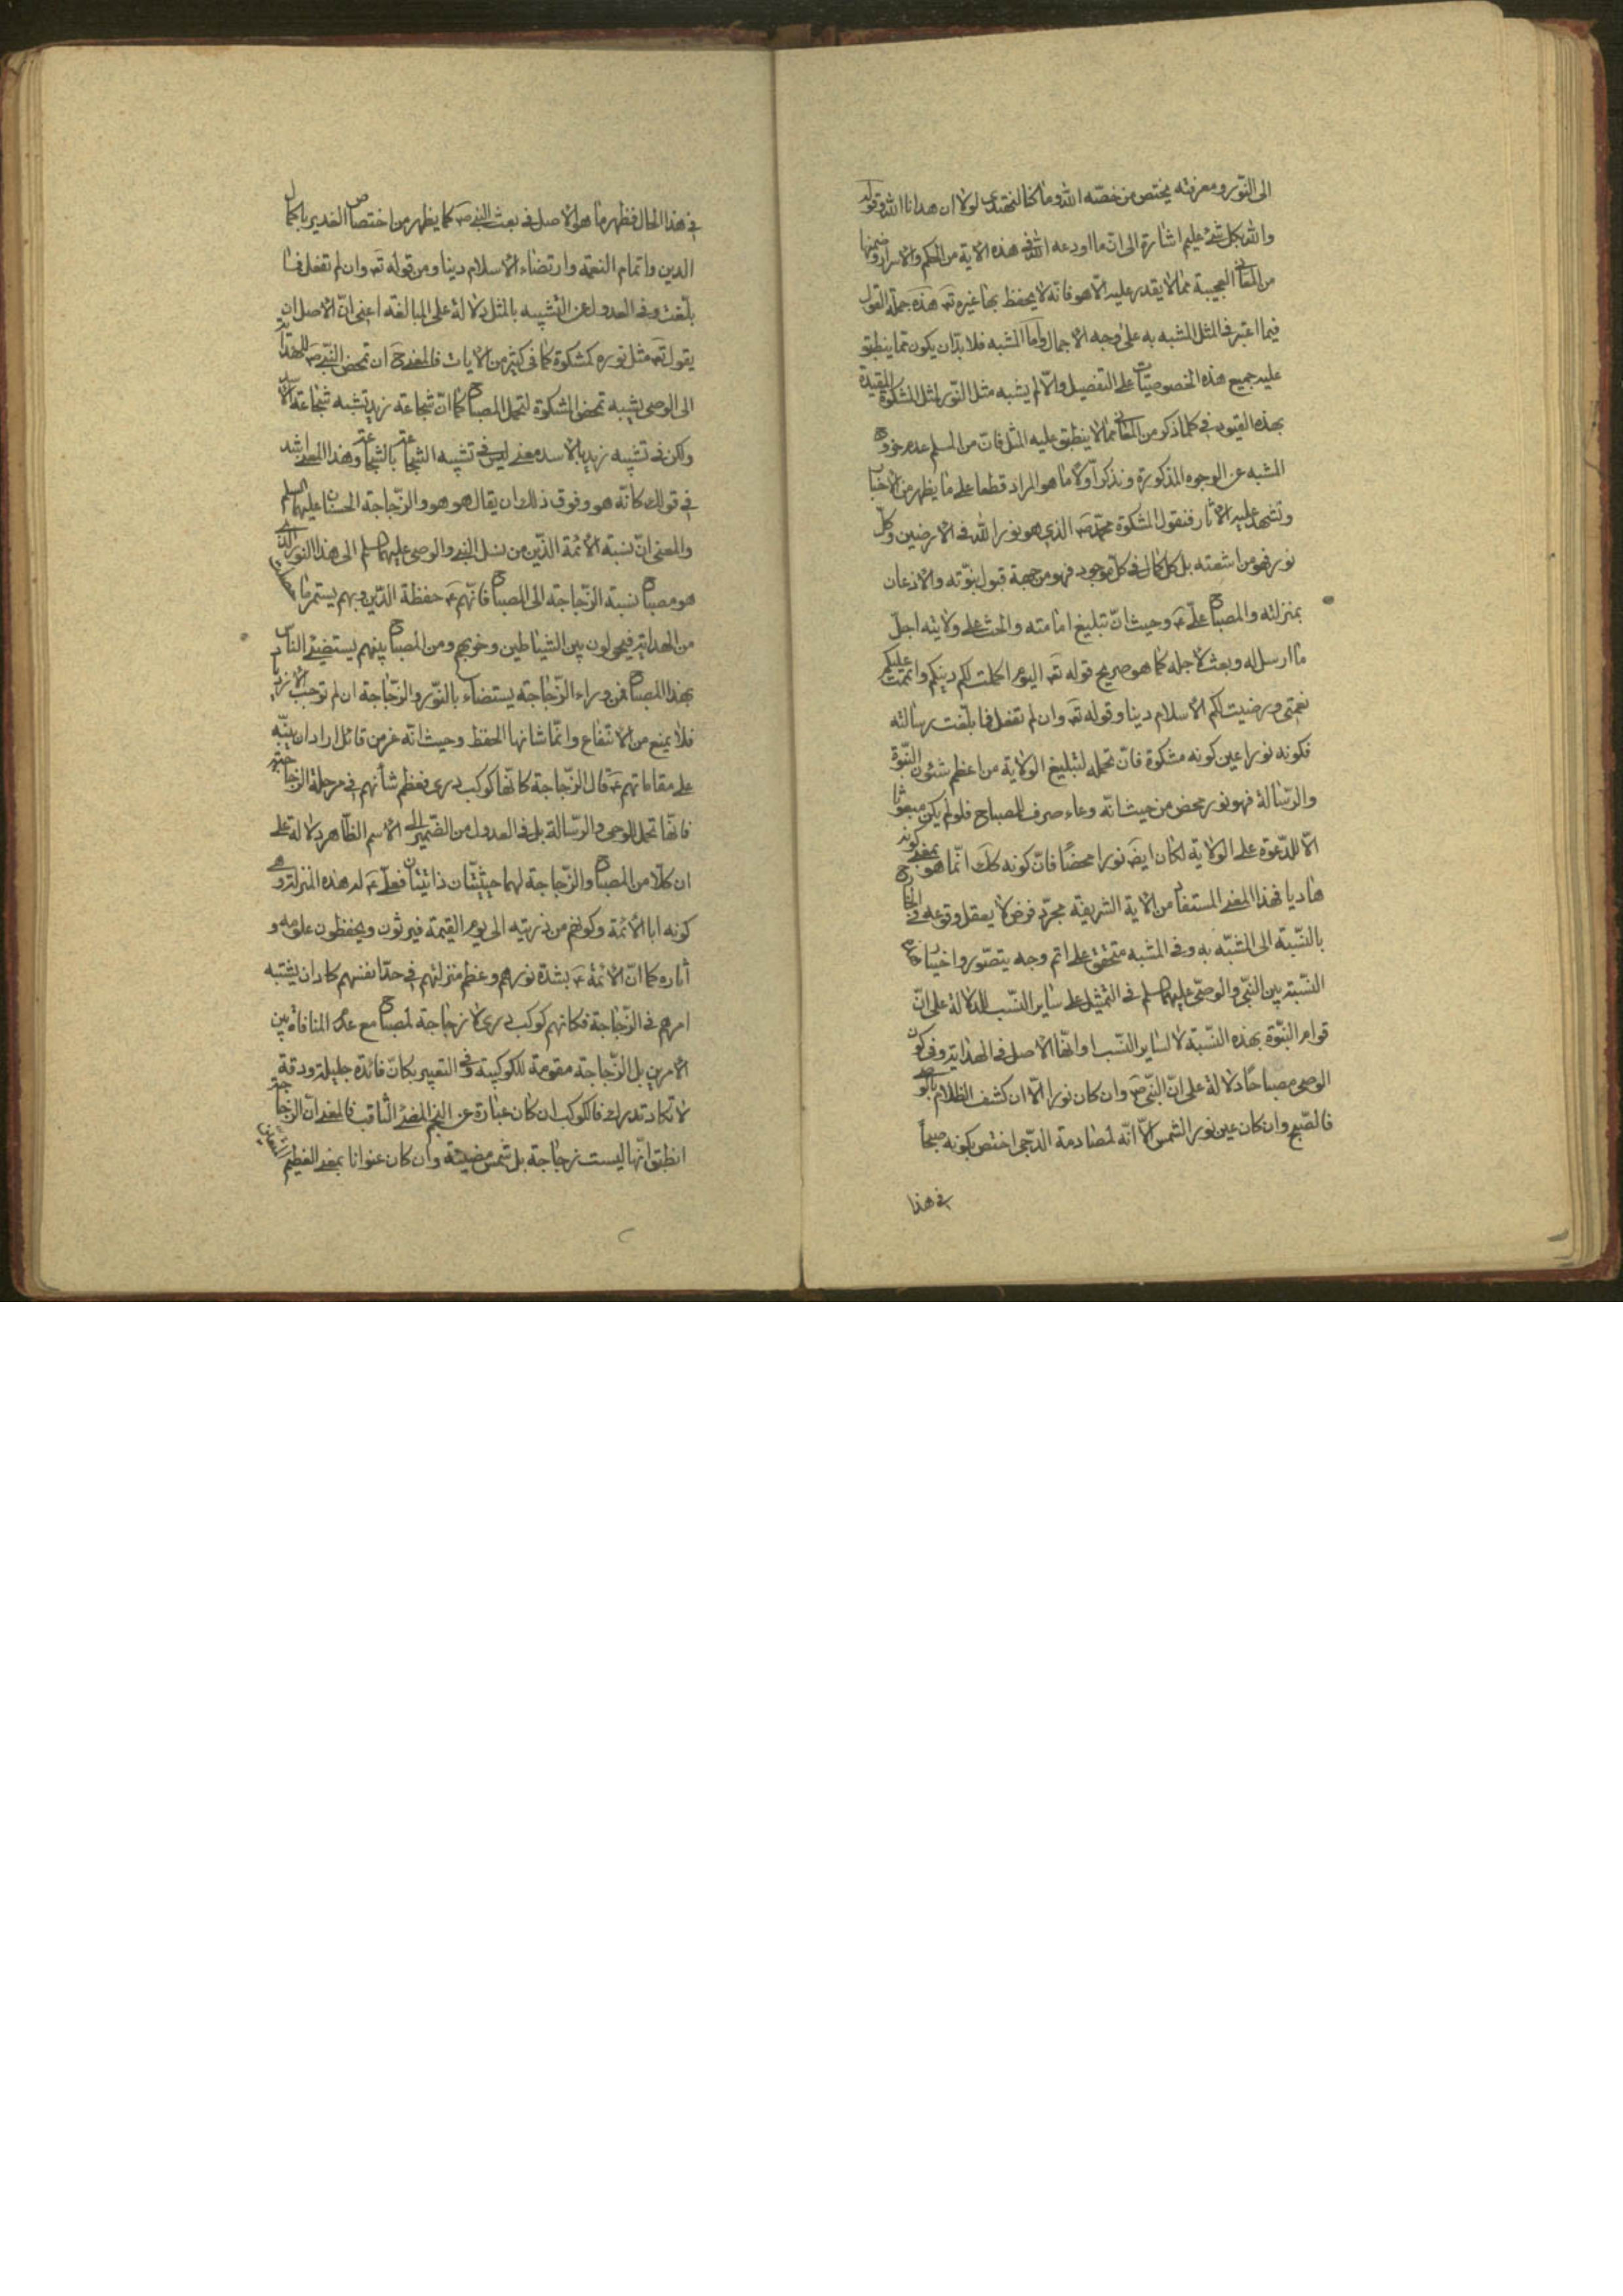 الى النّور ومعرفته يختص من خصّه الله وما كنّا لنهتدى لولا ان هدانا الله وقوله
والله بكل شئ عليم اشارة الى انّ ما اودعه الله فى هذه الاية من الحكم والاسرار وضمنها
من المعانى العجيبة ممّا لا يقدر عليه الّا هو فانّه لا يحفظ بها غيره تع هذه جملة القول
فيما اعتبر فى المثل المشبه به على وجه الاجمال وامّا المشبه فلا بدّ ان يكون ممّا ينطبق
عليه جميع هذه الخصوصيّات على التفصيل والّا لم يشبه مثل النّور لمثل المشكوة المقيدة
بهذه القيود فى كلما ذكر من المعانى ممّا لا ينطبق عليه المثل فانّ من المسلم عدم خروج
المشبه عن الوجوه المذكورة ونذكر اولا ما هو المراد قطعا على ما يظهر من الاخبار
وتشهد عليه الاثار فنقول المشكوة محمّد ص الذى هو نور الله فى الارضين وكلّ
نور فهو من اشعته بل كل كمال فى كلّ موجود فهو من جهة قبول نبوّته والاذعان
بمنزلته والمصباح علىّ ع وحيث انّ تبليغ امامته والحث على ولايته اجلّ
ما ارسل له وبعث لاجله كما هو صريح قوله تع اليوم اكملت لكم دينكم واتممت عليكم
نعمتى ورضيت لكم الاسلام دينا وقوله تع وان لم تفعل فما بلّغت رسالته
فكونه نورا عين كونه مشكوة فانّ تحمله لتبليغ الولاية من اعظم شئون النّبوّة
والرّسالة فهو نور محض من حيث انّه وعاء صرف للمصباح فلو لم يكن مبعوثا
الّا للدّعوة على الولاية لكان ايض نورا محضًا فانّ كونه كك انّما هو بمعنى كونه
هاديا فهذا المعنى المستفاد من الاية الشريفة مجرّد فرض لا يعقل وقوعه فى الخارج
بالنّسبة الى المشبّه به وفى المشبه متحقق على اتم وجه يتصّور واختيار هذه
النّسبة بين النبّى والوصّى عليهما السلم فى التمثيل على ساير النّسب للدلالة على انّ
قوام النبّوة بهذه النّسبة لا لساير النّسب وانّها الاصل فى الهداية وفى كون
الوصى مصباحًا دلالة على انّ النبّى ص وان كان نورا الّا ان كشف الظلام بالوصى
فالصّبح وان كان عين نور الشمس الّا انّه لمصادمة الدّجى اختص بكونه صبحاً
فى هذا
فى هذا الحال فظهر ما هو الاصل فى بعث النبى ص كما يظهر من اختصاص الغدير باكمال
الدين واتمام النعمة وارتضاء الاسلام دينا ومن قوله تع وان لم تفعل فما
بلّغت وفى العدول عن التّشبيه بالمثل دلالة على المبالغة اعنى انّ الاصل ان
يقول تع مثل نوره كمشكوة كما فى كثير من الايات فالمعنى ح ان تمحض النّبى ص للهداية
الى الوصى يشبه تمحض المشكوة لتحمل المصباح كما انّ شجاعة زيد تشبه شجاعة الاسد
ولكن فى تشبيه زيد بالاسد معنى ليس فى تشبيه الشجاعة بالشجاعة وهذا المعنى اشد
فى قولك كانّه هو وفوق ذلك ان يقال هو هو والزّجاجة الحسنان عليهما السلم
والمعنى انّ نسبة الائمة الذّين من نسل النبى والوصى عليهما السلم الى هذا النور الذى
هو مصباح نسبة الزّجاجة الى المصباح فانّهم ع حفظة الدّين وبهم يستمر ما
من الهداية فيحولون بين الشياطين وخروجهم ومن المصباح بينهم يستضيئ الناس
بهذا المصباح فمن وراء الزّجاجة يستضاء بالنّور والزّجاجة ان لم توجب الازدياد
فلا يمنع من الانتفاع وانّما شانها الحفظ وحيث انّه عز من قائل اراد ان ينبّه
على مقاماتهم ع قال الزّجاجة كانّها كوكب درى فعظم شأنهم فى مرحلة الزجاجيّة
فانّها تحمل للوحى والرّسالة بل فى العدول من الضّمير الى الاسم الظّاهر دلالة على
ان كلّا من المصباح والزّجاجة لهما حيثيّتان ذاتيّتان فعلىّ ع له هذه المنزلة وهى
كونه ابا الائمّة وكونهم من ذريته الى يوم القيمة فيرثون ويحفظون علومه و
اثاره كما انّ الائمة ع بشدّة نورهم وعظم منزلتهم فى حدّ انفسهم كاد ان يشتبه
امرهم فى الزّجاجة فكانهم كوكب درى لا زجاجة لمصباح مع عدم المنافاة بين
الامرين بل الزّجاجة مقومة للكوكبية وفى التعبير بكانّ فائدة جليلة ودقة
لا تكاد تدرك فالكوكب ان كان عبارة عن النجم المضئ الثاقب فالمعنى انّ الزجاجة
انطبق انّها ليست زجاجة بل شمس مضيئة وان كان عنوانا بمعنى العظيم